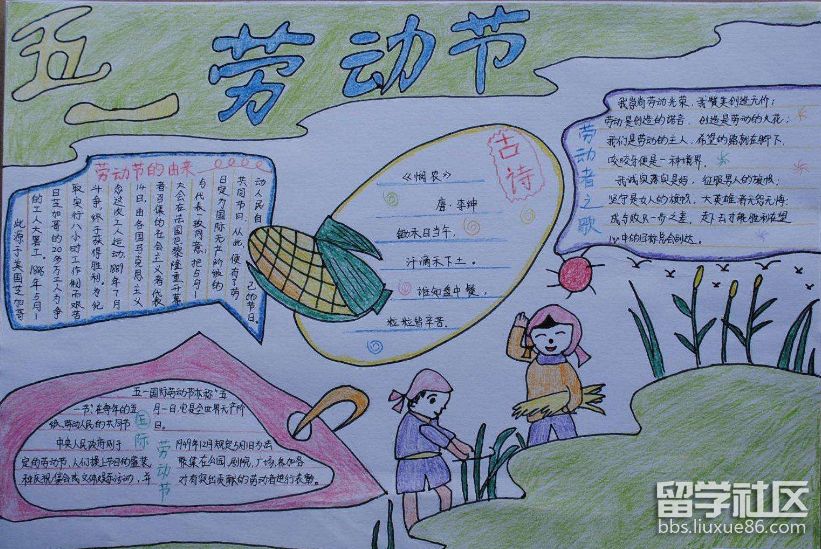 五一劳动节
劳动节的由来
此源于美国芝加哥
的工人大罢工。1886年5月1
日芝加哥的20多万工人为争
取实行八小时工作制而艰苦
斗争，终于获得胜利。为纪
念这次工人运动，1889年7月
14日，由各国马克思主义
者召集的社会主义者代表
大会在法国巴黎隆重开幕
与代表一致同意，把5月1
日定为国际无产阶级的
共同节日。从此，便有了劳
动人民自
己的节日。
古诗
《悯农》
唐·李绅
锄禾日当午，
汗滴禾下土。
谁知盘中餐，
粒粒皆辛苦。
劳动者之歌
我崇尚劳动光荣，我赞美创造无价；
劳动是创造的语言，创造是劳动的火花；
我们是劳动的主人，希望的路就在脚下，
国际劳动节
五一国际劳动节亦称“五
一节”在每年的五
月一日，它是全世界无产阶
级、劳动人民的共同节
日。
中央人民政府则于
1949年12月规定5月1日为法
定劳动节，人们换上节日的盛装，
聚集在公园、剧院、广场，参加各
种庆祝集会或文体娱乐活动，并
对有突出贡献的劳动者进行表彰。
留学社区
bbs.liuxue86.com